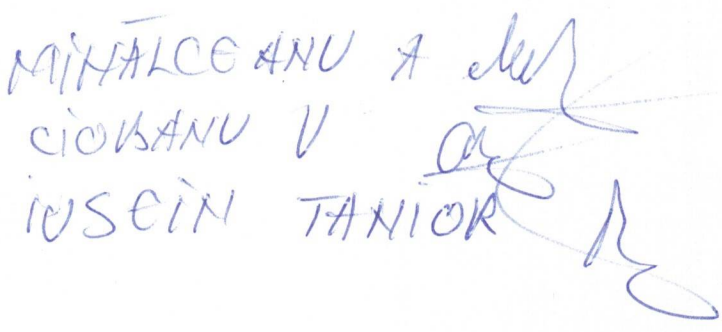 MIHĂLCEANU A
CIOBANU V
IUSEIN TANIOR